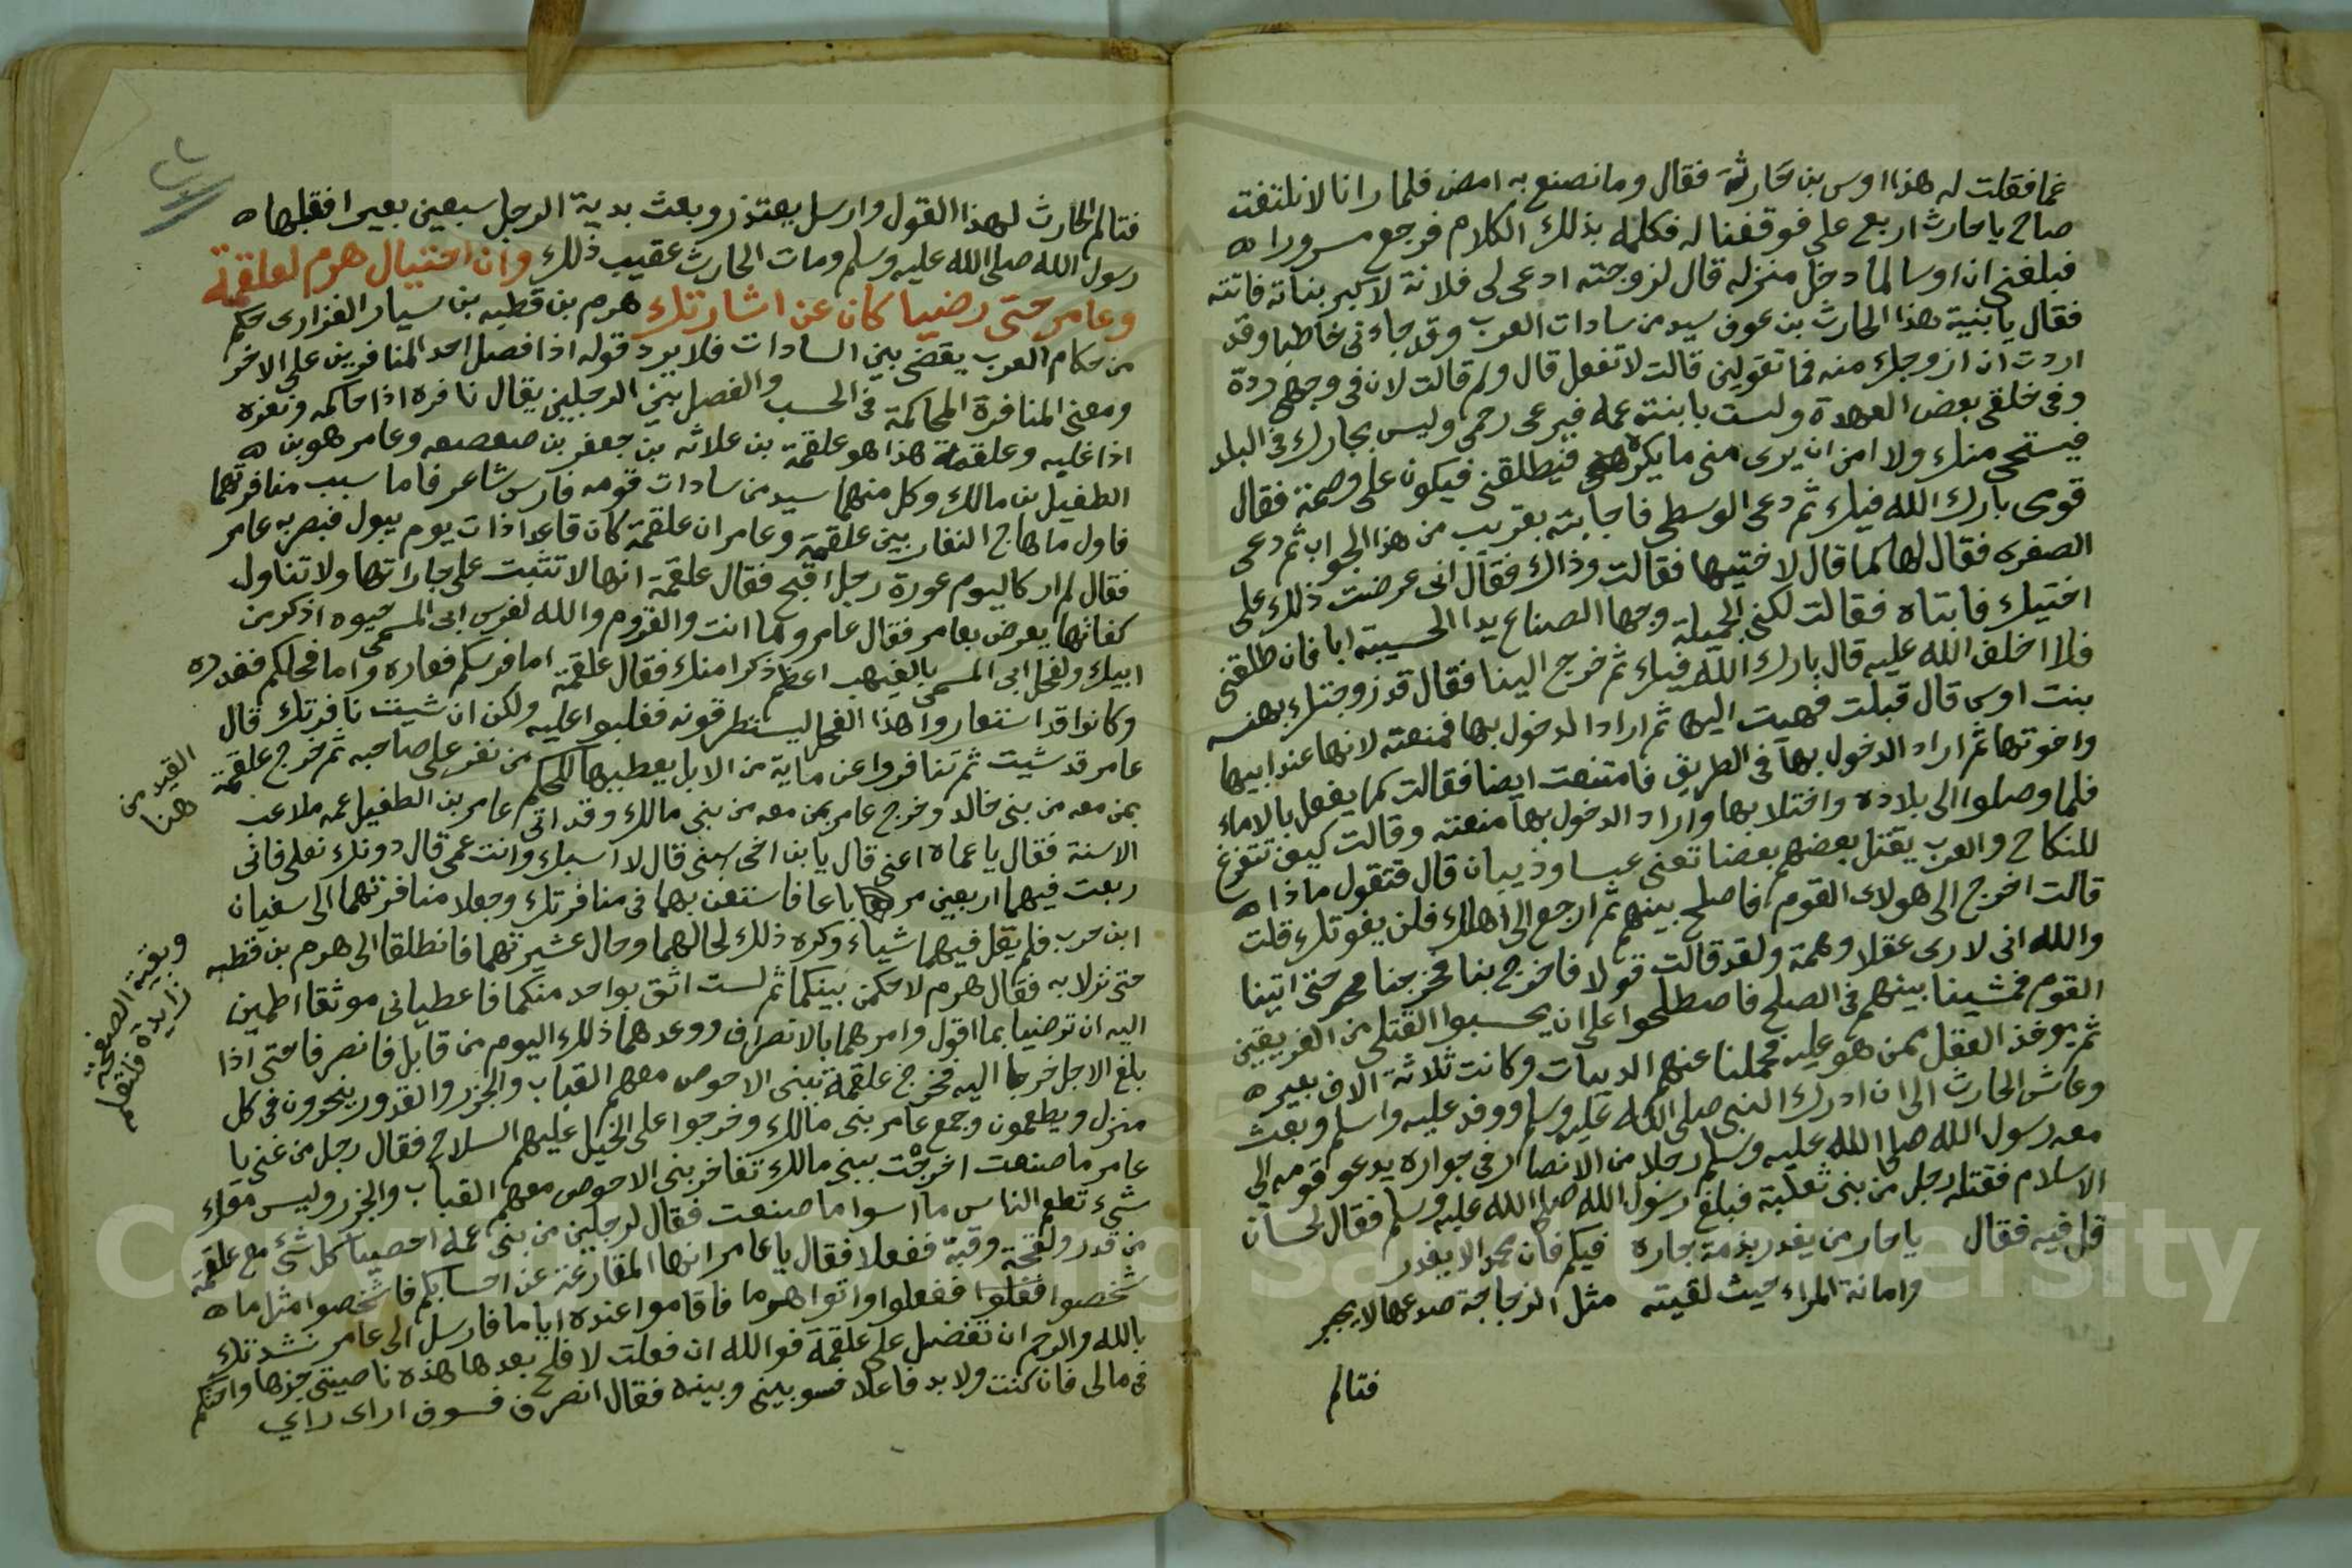 غما فقلت له هذا اوس بن حارثة فقال وما نصنع به امض فلما رانا لا نلتفت
صاح يا حارث اربع علي فوقفنا له فكلمه بذلك الكلام فرجع مسرورا ه
فبلغني ان اوسا لما دخل منزله قال لزوجته ادعى لى فلانة لاكبر بناته فاتته
فقال يا بنية هذا الحارث بن عوف سيد من سادات العرب وقد جاءنى خاطبا وقد
اردت ان ازوجك منه فما تقولين قالت لا تفعل قال ولم قالت لان فى وجهى ردة
وفى خلقى بعض العهدة ولست بابنة عمه فيرعى رحمى وليس بجارك فى البلد
فيستحى منك ولا امن ان يرى منى ما يكره فيطلقنى فيكون على وصمة فقال
قومى بارك الله فيك ثم دعى الوسطى فاجابته بقريب من هذا الجواب ثم دعى
الصغرى فقال لها كما قال لاختيها فقالت وذاك فقال انى عرضت ذلك على
اختيك فابتاه فقالت لكنى الجميلة وجها الصناع يدا الحسيبة ابا فان طلقنى
فلا اخلف الله عليه قال بارك الله فيك ثم خرج الينا فقال قد زوجتك بهنسه
بنت اوس قال قبلت فهيت اليها ثم اراد الدخول بها فمنعته لانها عند ابيها
واخوتها ثم اراد الدخول بها فى الطريق فامتنعت ايضا فقالت كما يفعل بالاماء
فلما وصلوا الى بلاده واختلا بها واراد الدخول بها منعته وقالت كيف تتفرغ
للنكاح والعرب يقتل بعضهم بعضا تعنى عبسا وذيبان قال فتقول ماذا ه
قالت اخرج الى هولاى القوم فاصلح بينهم ثم ارجع الى اهلك فلن يفوتك قلت
والله انى لارى عقلا وهمة ولقد قالت قولا فاخرج بنا فخرجنا حتى اتينا
القوم فمشينا بينهم فى الصلح فاصطلحوا على ان يحسبوا القتلى من الفريقين
ثم يوخذ العقل ممن هو عليه فحملنا عنهم الديات وكانت ثلاثة الاف بعير ه
وعاش الحارث الى ان ادرك النبى صلى الله عليه وسلم ووفد عليه واسلم وبعث
معه رسول الله صلى الله عليه وسلم رجلا من الانصار فى جواره يدعو قومه الى
الاسلام فقتله رجل من بنى ثعلبة فبلغ رسول الله صلى الله عليه وسلم فقال لحسان
قل فيه فقال يا حار من يغدر بذمة جاره فيكم فان محمد الا يغدر
وامانة المراء حيث لقيته مثل الزجاجة صدعها لا يجبر
فتالم
فتالم الحارث لهذا القول وارسل يعتذر وبعث بدية الرجل سبعين بعيرا فقبلها ه
رسول الله صلى الله عليه وسلم ومات الحارث عقيب ذلك وان احتيال هرم لعلقمة
وعامر حتى رضيا كان عن اشارتك هرم بن قطبه بن سيار الفزارى حكم
من حكام العرب يقضى بين السادات فلا يرد قوله اذا فصل احد المنافرين على الاخر
ومعنى المنافرة المحاكمة فى الحسب والفصل بين الرجلين يقال نافره اذا حاكمه ونفره
اذا غلبه وعلقمة هذا هو علقمة بن علاثه بن جعفر بن صعصعه وعامر هو بن ه
الطفيل بن مالك وكل منهما سيد من سادات قومه فارس شاعر فاما سبب منافرتهما
فاول ما هاج النفار بين علقمة وعامر ان علقمة كان قاعدا ذات يوم يبول فبصر به عامر
فقال لم ار كاليوم عورة رجل اقبح فقال علقمة انها لا تثبت على جاراتها ولا تناول
كفاتها يعرض بعامر فقال عامر وما انت والقروم والله لفرس ابى المسمى حيوه اذكر من
ابيك ولفحل ابى المسمى بالغيهب اعظم ذكرا منك فقال علقمة اما فرسكم فعاره واما فحلكم فغدره
وكانوا قد استعاروا هذا الفحل ليستطرقونه فغلبوا عليه ولكن ان شيت نافرتك قال
عامر قد شيت ثم تنافروا عن ماية من الابل يعطيها للحكم من نفر على صاحبه ثم خرج علقمة
بمن معه من بنى خالد وخرج عامر بمن معه من بنى مالك وقد اتى عامر بن الطفيل عمه ملاعب
الاسنة فقال يا عماه اعنى قال يا بن اخى سبنى قال لا اسبك وانت عمى قال دونك نعلى فانى
ربعت فيهما اربعين مرباعا فاستعن بهما فى منافرتك وجعلا منافرتهما الى سفيان
ابن حرب فلم يقل فيهما شياء وكره ذلك لحالهما وحال عشيرتهما فانطلقا الى هرم بن قطبه
حتى نزلا به فقال هرم لاحكمن بينكما ثم لست اثق بواحد منكما فاعطيانى موثقا اطمين
اليه ان ترضيا بما اقول وامرهما بالانصراف ووعدهما ذلك اليوم من قابل فانصرفا حتى اذا
بلغ الاجل خرجا اليه فخرج علقمة ببنى الاحوص معهم القباب والجزر والقدور ينحرون فى كل
منزل ويطعمون وجمع عامر بنى مالك وخرجوا على الخيل عليهم السلاح فقال رجل من غنى يا
عامر ما صنعت اخرجت ببنى مالك تفاخر بنى الاحوص معهم القباب والجزر وليس معك
شىء تطعم الناس ما اسوا ما صنعت فقال لرجلين من بنى عمه احصيا كل شىء مع علقمة
من قدر ولقحة وقبة ففعلا فقال يا عامر انها المقارعة عن احسابكم فاشخصوا مثل ما ه
شخصوا ففعلوا واتوا هرما فاقاموا عنده اياما فارسل الى عامر نشدتك
بالله والرحم ان تفضل على علقمة فوالله ان فعلت لا فلح بعدها هذه ناصيتى جزها واحتكم
فى مالى فان كنت ولا بد فاعلا فسو بينى وبينه فقال انصرف فسوف ارى راي
القيد من
هنا
وبقية الصفحة
زايدة فلتعلم
Copyright © King Saud University